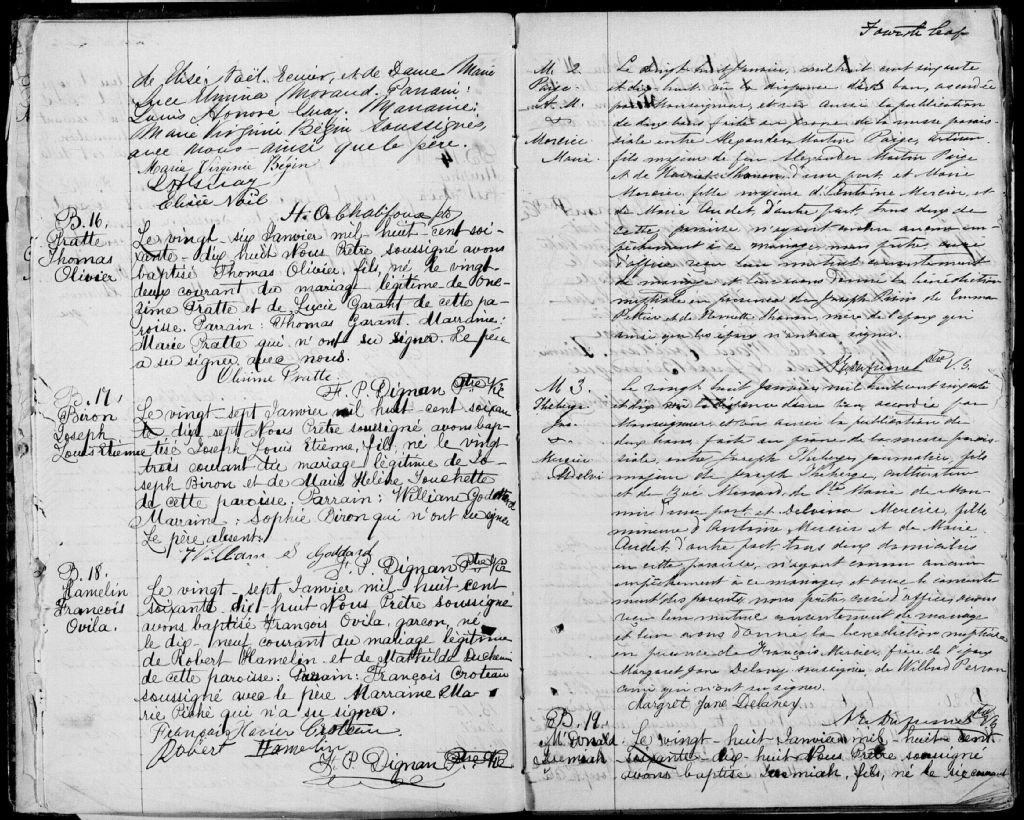 de Elisé Noël Ecuier, et de Dame Marie
Luce Elmina Moraud. Parrain:
Louis Honoré Huay. Marraine:
Marie Virginie Bégin soussignés,
avec nous ainsi que le père.
Marie Virginie Bégin
Elisée Noël
H. O. Chalifoux ptre
B. 16.
Pratte
Thomas
Olivier
Le vingt six Janvier mil huit cent soi-
xante-dix huit Nous Prêtre soussigné avons
baptisé Thomas Olivier, fils, né le vingt
deux courant du mariage légitime de One-
zime Pratte et de Lucie Garant de cette pa-
roisse. Parrain: Thomas Garant. Marraine:
Marie Pratte qui n'ont su signer. Le père
a su signer avec nous.
Pratte
F. P. Dignan Ptre Vic
B. 17.
Biron
Joseph
Louis Etienne
Le vingt-sept Janvier mil huit-cent soixan
te dix sept Nous Prêtre soussigné avons bap-
tisé Joseph Louis Etienne, fils, né le vingt
trois courant du mariage légitime de Jo-
seph Biron et de Marie Hélène Touchette
de cette paroisse. Parrain: William Goddard
Marraine: Sophie Biron qui n'ont su signer
Le père absent.
William S Goddard
F. P. Dignan Ptre Vic
B. 18.
Hamelin
François
Ovila.
Le vingt-sept Janvier mil huit-cent
soixante dix-huit Nous Prêtre soussigné
avons baptisé François Ovila, garçon, né
le dix-neuf courant du mariage légitime
de Robert Hamelin et de Mathilde
de cette paroisse. Parrain: François Croteau
soussigné avec le père Marraine Ma-
rie Piché qui n'a su signer.
François Xavier Croteau
Robert Hamelin
F. P. Dignan Ptre Vic
Fourth leaf
M. 2.
Paige
A. M.
&
Mercier
Marie
Le vingt huit Janvier, mil huit cent soixante
et dix huit, vu la dispense d'un ban, accordée
par Monseigneur, et vu aussi la publication
de deux bans faite au prône de la messe parois-
siale entre Alexander Martin Paige,
fils majeur de feu Alexander Martin Paige
et de Harriet Shanon, d'une part, et Marie
Mercier, fille majeure d'Antoine Mercier, et
de Marie Audet, d'autre part, tous deux de
cette paroisse n'ayant connu aucun em-
pêchement à ce mariage, nous prêtre, curé
d'office avons reçu leur mutuel consentement
de mariage et leur avons donné la bénédiction
nuptiale en présence de Joseph Paris de Emma
et de Henriette Shanon, mère de l'époux qui
ainsi que les époux n'ont su signer.
ptre V.G.
M 3.
Théberge
Jos.
&
Mercier
Delvi
Le vingt huit Janvier, mil huit cent soixante
et dix huit vu la dispense d'un ban, accordée par
Monseigneur, et vu aussi la publication de
deux bans, faite au prône de la messe parois-
siale, entre Joseph Théberge, journalier, fils
majeur de Joseph Théberge, cultivateur
et de Zoé Ménard, de Ste Marie de Mon-
noir d'une part, et Delvina Mercier, fille
mineure d'Antoine Mercier et de Marie
Audet, d'autre part, tous deux domiciliés
en cette paroisse, n'ayant connu aucun
empêchement à ce mariage, et avec le consente-
ment des parents, nous prêtre, curé d'office, avons
reçu leur mutuel consentement de mariage
et leur avons donné la bénédiction nuptiale
en présence de François Mercier, frère de l'épouse
Margaret Jane Delany soussignée, de Perron
ami qui n'ont su signer.
Margret Jane Delaney
ptre V.G.
B. 19.
McDonald
Jeremiah
Le vingt-huit Janvier mil huit-cent-
soixante-dix-huit Nous Prêtre soussigné
avons baptisé Jeremiah, fils, né le six courant